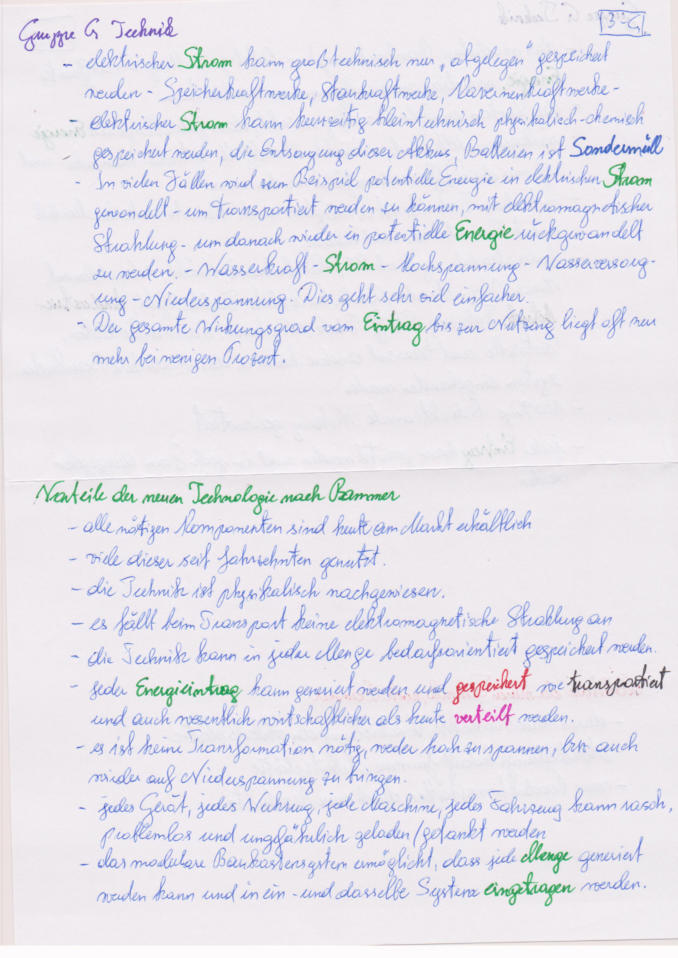 Gruppe G Technik
3-G.
- elektrischer Strom kann großtechnisch nur „abgelegen" gespeichert
werden - Speicherkraftwerke, Staukraftwerke, Kavernenkraftwerke -
- elektrischer Strom kann kurzzeitig kleintechnisch physikalisch-chemisch
gespeichert werden, die Entsorgung dieser Akkus, Batterien ist Sondermüll
- In vielen Fällen wird zum Beispiel potentielle Energie in elektrischen Strom
gewandelt - um transportiert werden zu können, mit elektromagnetischer
Strahlung - um danach wieder in potentielle Energie rückgewandelt
zu werden. - Wasserkraft - Strom - Hochspannung - Wasserversorg-
ung - Niederspannung. Dies geht sehr viel einfacher.
- Der gesamte Wirkungsgrad vom Eintrag bis zur Nutzung liegt oft nur
mehr bei wenigen Prozent.
Vorteile der neuen Technologie nach Bammer
- alle nötigen Komponenten sind heute am Markt erhältlich
- viele dieser seit Jahrzehnten genutzt.
- die Technik ist physikalisch nachgewiesen.
- es fällt beim Transport keine elektromagnetische Strahlung an
- die Technik kann in jeder Menge bedarfsorientiert gespeichert werden.
- jeder Energieeintrag kann generiert werden und gespeichert wie transportiert
und auch wesentlich wirtschaftlicher als heute verteilt werden.
- es ist keine Transformation nötig, weder hoch zu spannen, bzw auch
wieder auf Niederspannung zu bringen.
- jedes Gerät, jedes Werkzeug, jede Maschine, jedes Fahrzeug kann rasch,
problemlos und ungefährlich geladen/getankt werden
- das modulare Baukastensystem ermöglicht, dass jede Menge generiert
werden kann und in ein - und dasselbe System eingetragen werden.